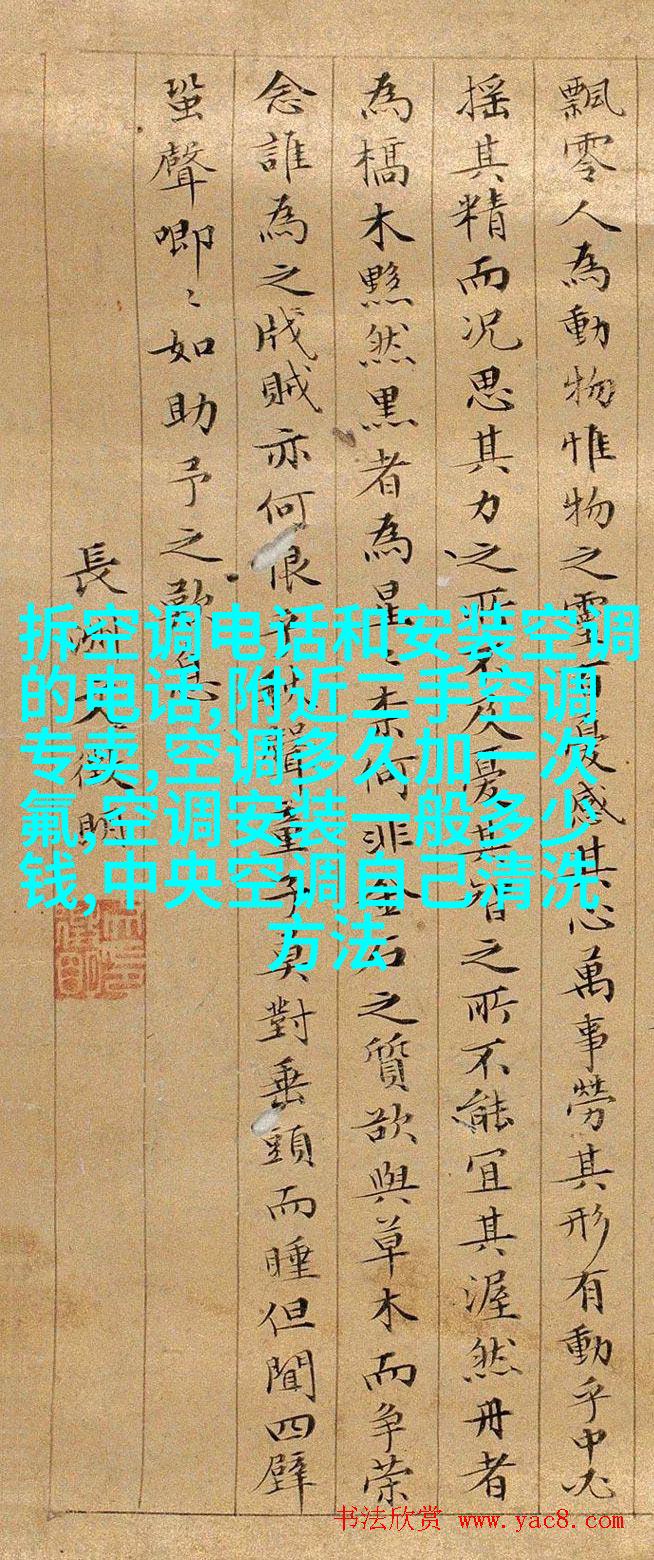 飄零人為動物惟物之靈百憂感其心萬事勞其形有動乎中必
搖其精而况思其力之所不及憂其智之所不能宜其渥然丹者
為槁木黟然黒者為星〻柰何非金石之質欲與草木而争荣
念誰為之戕賊亦何恨乎秋聲童子莫對垂頭而睡但聞四壁
蛩聲唧〻如助予之歎息
長洲文徵明
拆空调电话和安装空调
的电话,附近二手空调
专卖,空调多久加一次
氟,空调安装一般多少
钱,中央空调自己清洗
方法
书法欣赏 www.yac8.com